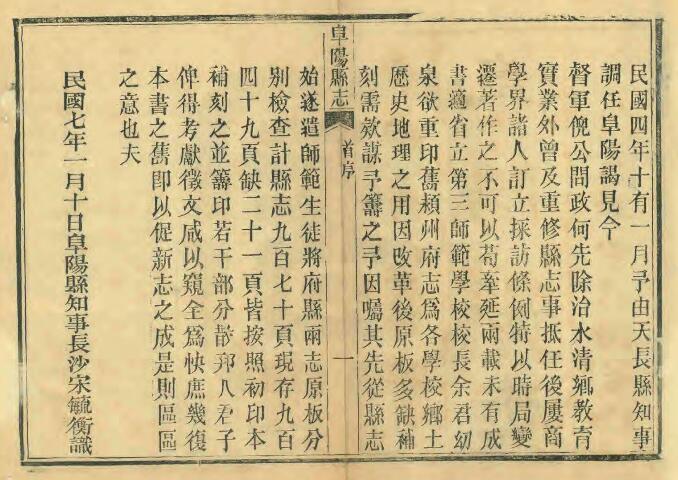 民國四年十有一月予由天長縣知事
調任阜陽謁見今
督軍倪公問政何先除治水清鄉教育
實業外曾及重修縣志事抵任後屢商
學界諸人訂立採訪條例特以時局變
遷著作之不可以苟牽延兩載未有成
書適省立第三師範學校校長余君幼
泉欲重印舊潁州府志爲各學校鄉土
歷史地理之用因改革後原板多缺補
刻需欵謀予籌之予因囑其先從縣志
阜陽縣志
首序
一
始遂遣師範生徒將府縣兩志原板分
別檢查計縣志九百七十頁現存九百
四十九頁缺二十一頁皆按照初印本
補刻之並籌印若干部分散邦人君子
俾得考獻徵文咸以窺全爲快庶幾復
本書之舊即以促新志之成是則區區
之意也夫
民國七年一月十日阜陽縣知事長沙宋毓衡識